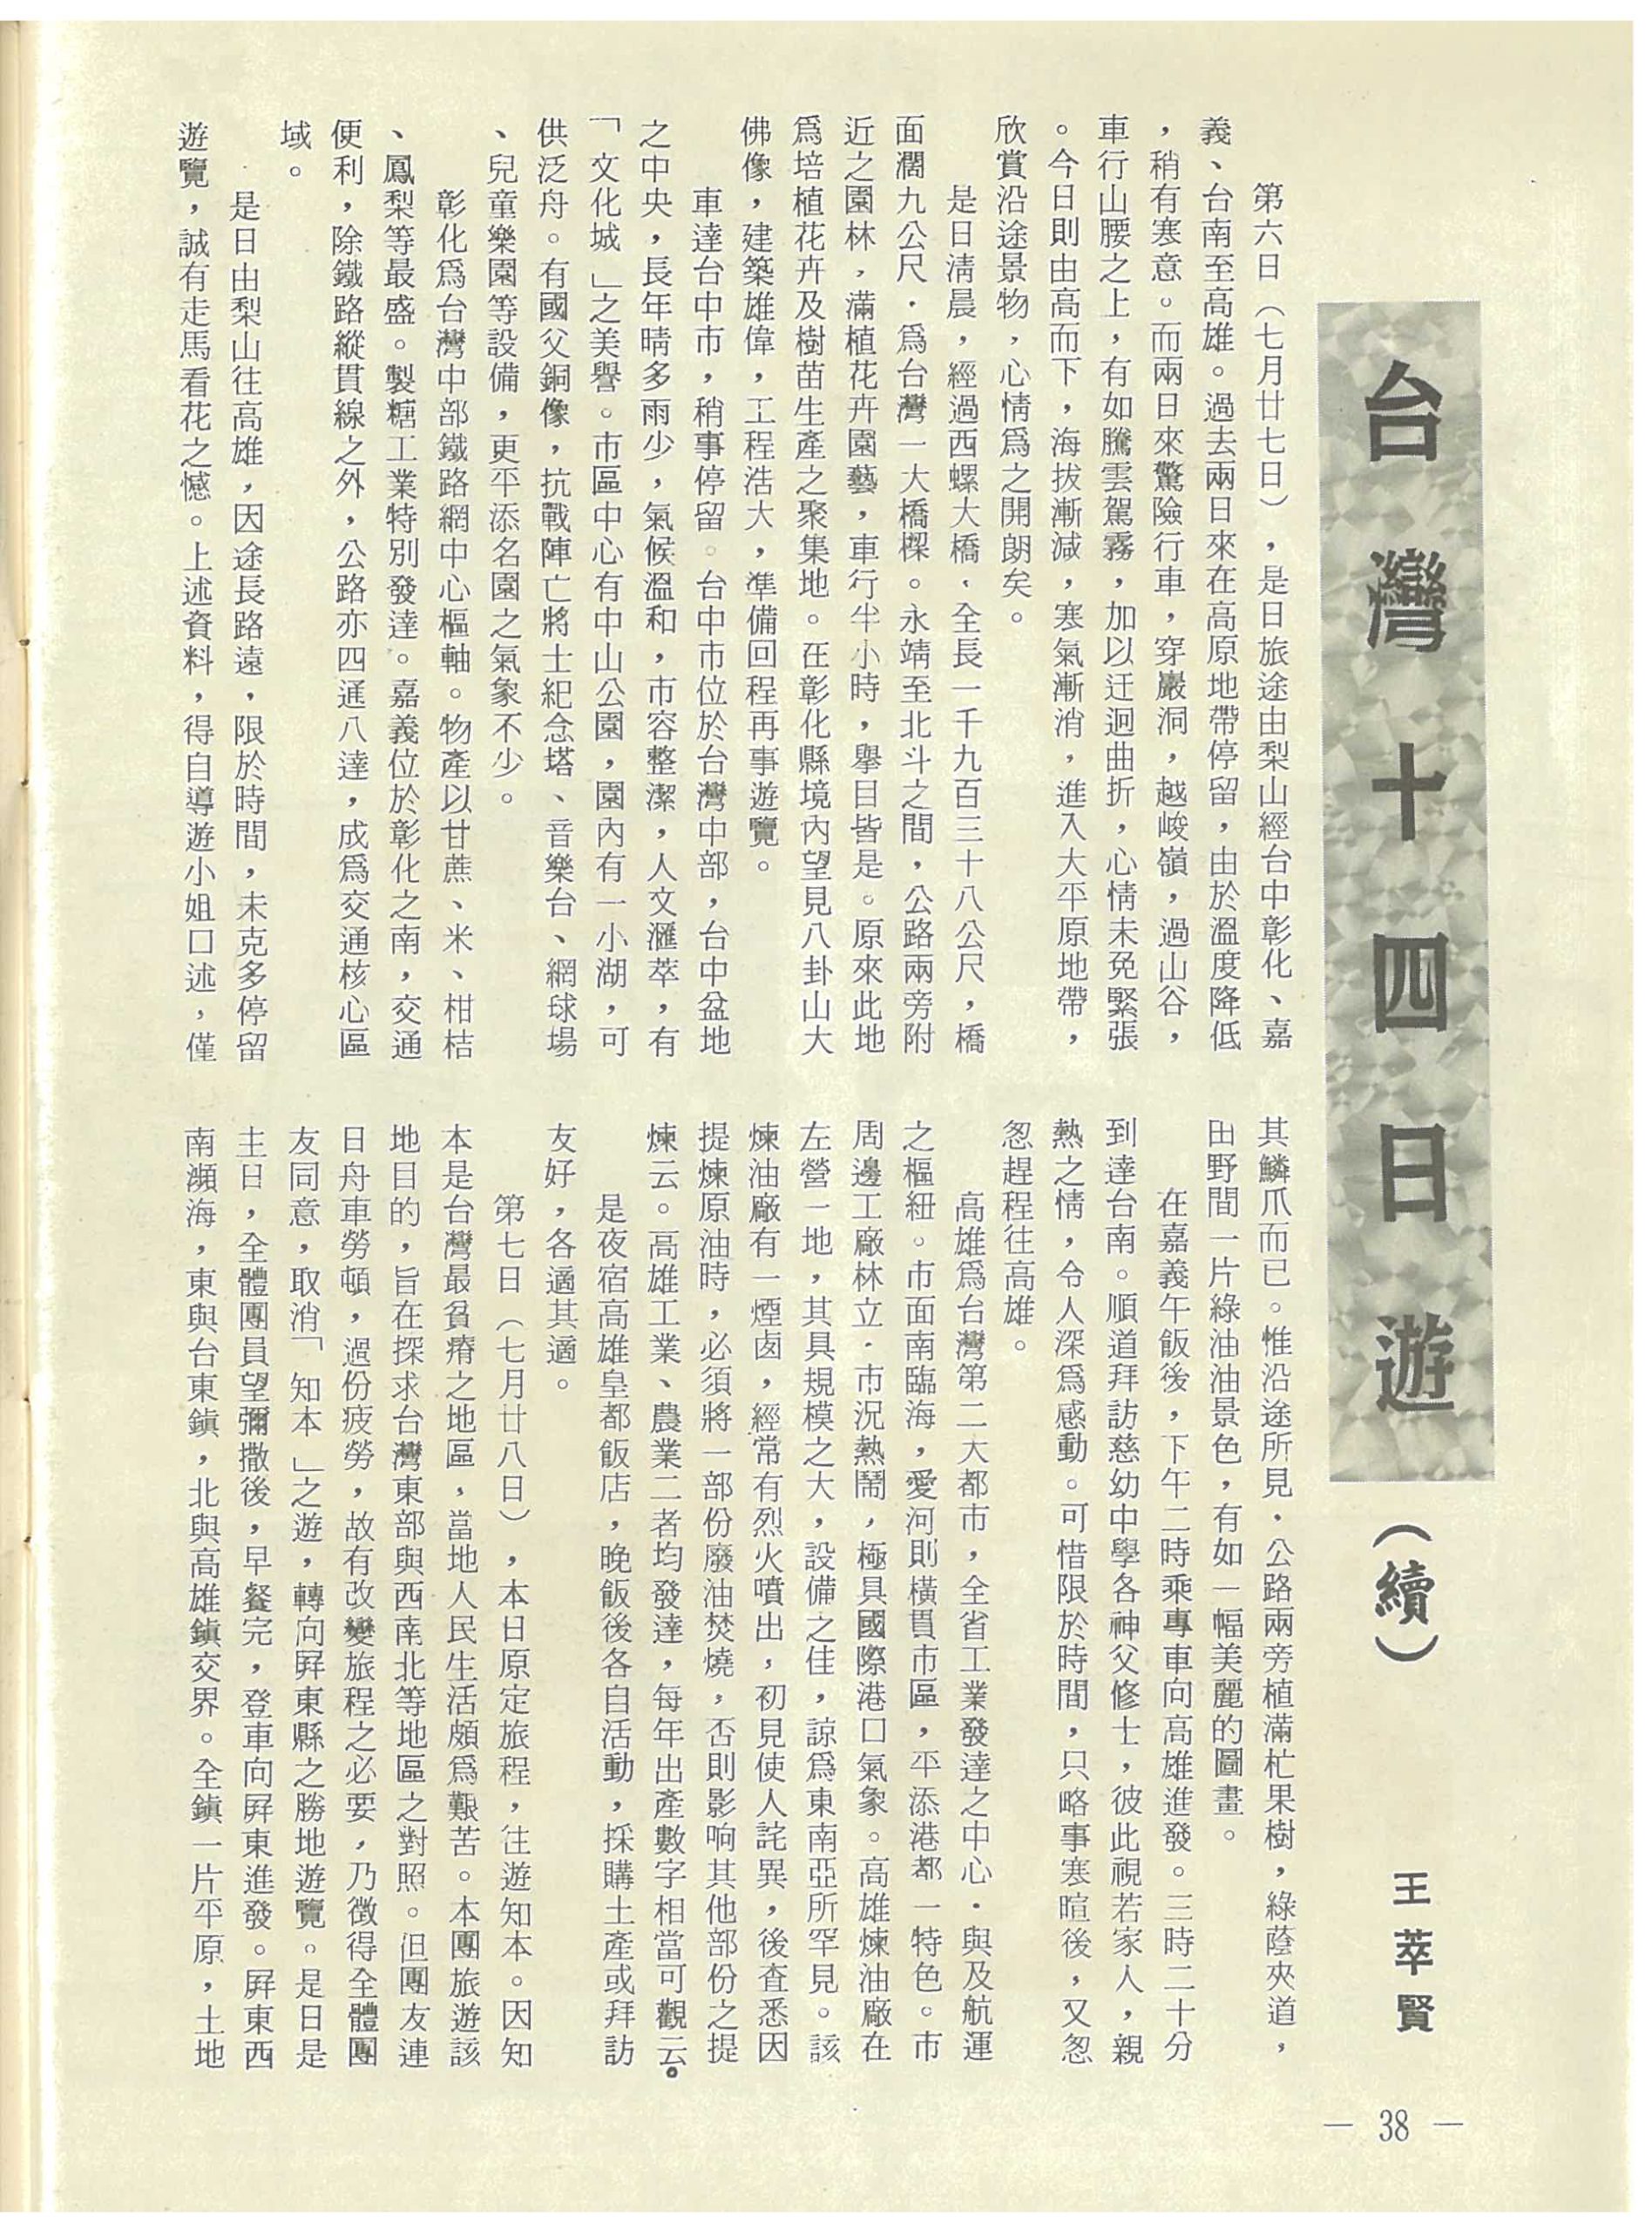 台灣十四日遊
（續）
王萃賢
第六日（七月廿七日），是日旅途由梨山經台中彰化、嘉
義、台南至高雄。過去兩日來在高原地帶停留，由於溫度降低
，稍有寒意。而兩日來驚險行車，穿巖洞，越峻嶺，過山谷，
車行山腰之上，有如騰雲駕霧，加以迂迴曲折，心情未免緊張
。今日則由高而下，海拔漸減，寒氣漸消，進入大平原地帶，
欣賞沿途景物，心情爲之開朗矣。
是日淸晨，經過西螺大橋，全長一千九百三十八公尺，橋
面濶九公尺，爲台灣一大橋樑。永靖至北斗之間，公路兩旁附
近之園林，滿植花卉園藝，車行半小時，舉目皆是。原來此地
爲培植花卉及樹苗生產之聚集地。在彰化縣境內望見八卦山大
佛像，建築雄偉，工程浩大，準備回程再事遊覽。
車達台中市，稍事停留。台中市位於台灣中部，台中盆地
之中央，長年晴多雨少，氣候溫和，市容整潔，人文滙萃，有
「文化城」之美譽。市區中心有中山公園，園內有一小湖，可
供泛舟。有國父銅像，抗戰陣亡將士紀念塔、音樂台、網球場
、兒童樂園等設備，更平添名園之氣象不少。
彰化爲台灣中部鐵路網中心樞軸。物產以甘蔗、米、柑桔
、鳳梨等最盛。製糖工業特別發達。嘉義位於彰化之南，交通
便利，除鐵路縱貫線之外，公路亦四通八達，成爲交通核心區
域。
是日由梨山往高雄，因途長路遠，限於時間，未克多停留
遊覽，誠有走馬看花之憾。上述資料，得自導遊小姐口述，僅
其鱗爪而已。惟沿途所見，公路兩旁植滿杧果樹，綠蔭夾道，
田野間一片綠油油景色，有如一幅美麗的圖畫。
在嘉義午飯後，下午二時乘專車向高雄進發。三時二十分
到達台南。順道拜訪慈幼中學各神父修士，彼此視若家人，親
熱之情，令人深爲感動。可惜限於時間，只略事寒暄後，又怱
怱趕程往高雄。
高雄爲台灣第二大都市，全省工業發達之中心，與及航運
之樞紐。市面南臨海，愛河則橫貫市區，平添港都一特色。市
周邊工廠林立，市況熱鬧，極具國際港口氣象。高雄煉油廠在
左營一地，其具規模之大，設備之佳，諒爲東南亞所罕見。該
煉油廠有一煙囱，經常有烈火噴出，初見使人詫異，後查悉因
提煉原油時，必須將一部份廢油焚燒，否則影响其他部份之提
煉云。高雄工業、農業二者均發達，每年出產數字相當可觀云。
是夜宿高雄皇都飯店，晚飯後各自活動，採購土產或拜訪
友好，各適其適。
第七日（七月廿八日），本日原定旅程，往遊知本。因知
本是台灣最貧瘠之地區，當地人民生活頗爲艱苦。本團旅遊該
地目的，旨在探求台灣東部與西南北等地區之對照。但團友連
日舟車勞頓，過份疲勞，故有改變旅程之必要，乃徵得全體團
友同意，取消「知本」之遊，轉向屛東縣之勝地遊覽。是日是
主日，全體團員望彌撒後，早餐完，登車向屛東進發。屛東西
南瀕海，東與台東鎮，北與高雄鎮交界。全鎮一片平原，土地
— 38 —